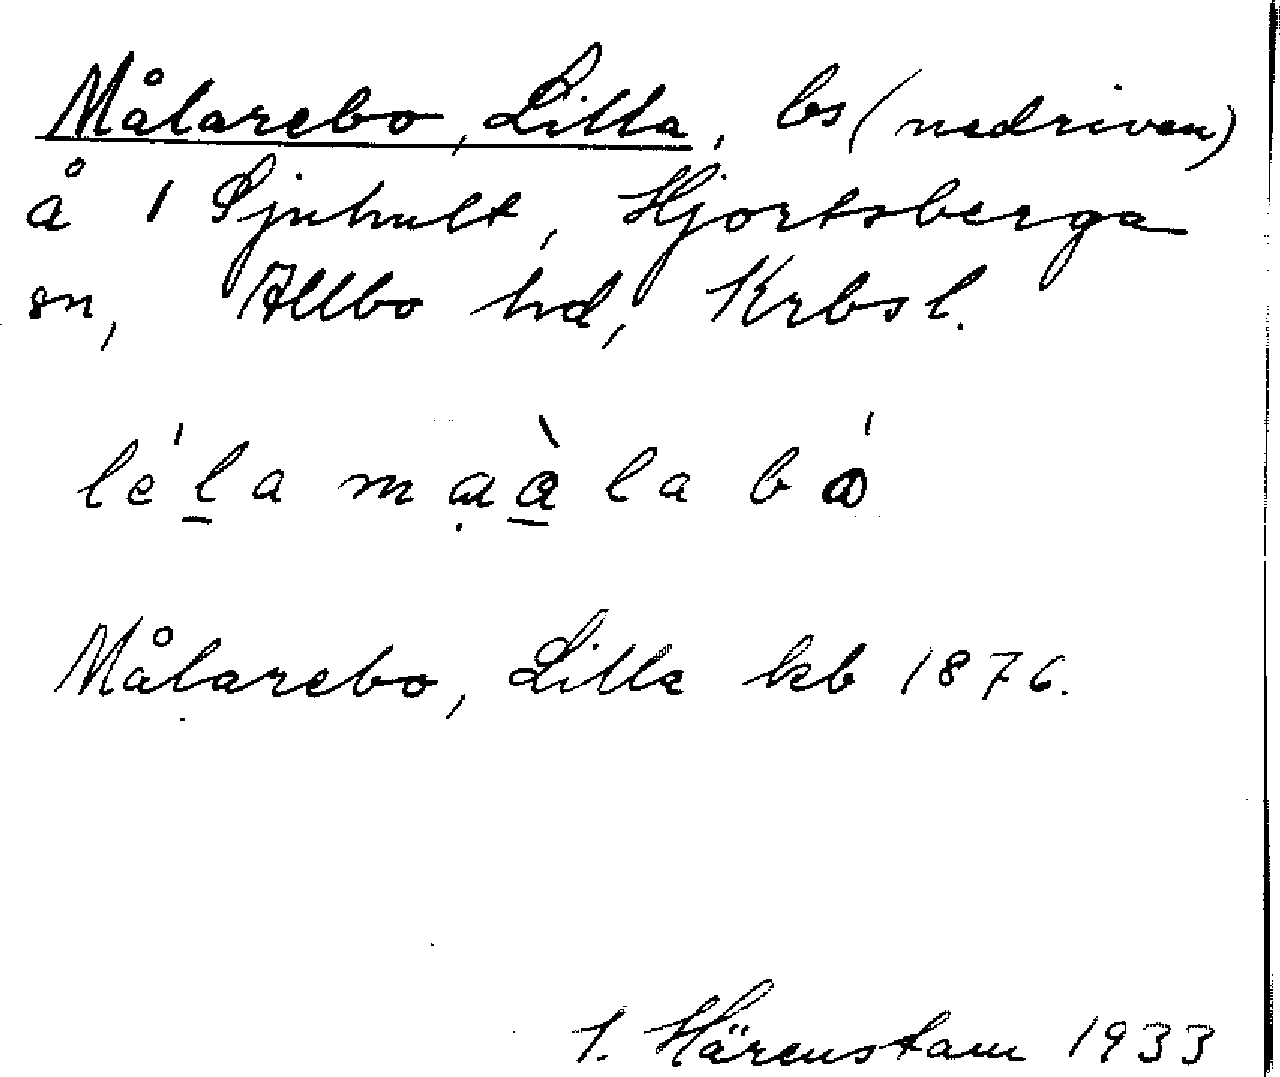 Målarebo, Lilla, bs (nedriven)
å 1 Sjuhult, Hjortsberga
sn, Allbo hd, Krbsl.
lé̱la mạà̱la bó
Målarebo, Lilla kb 1876.
I. Härenstam 1933